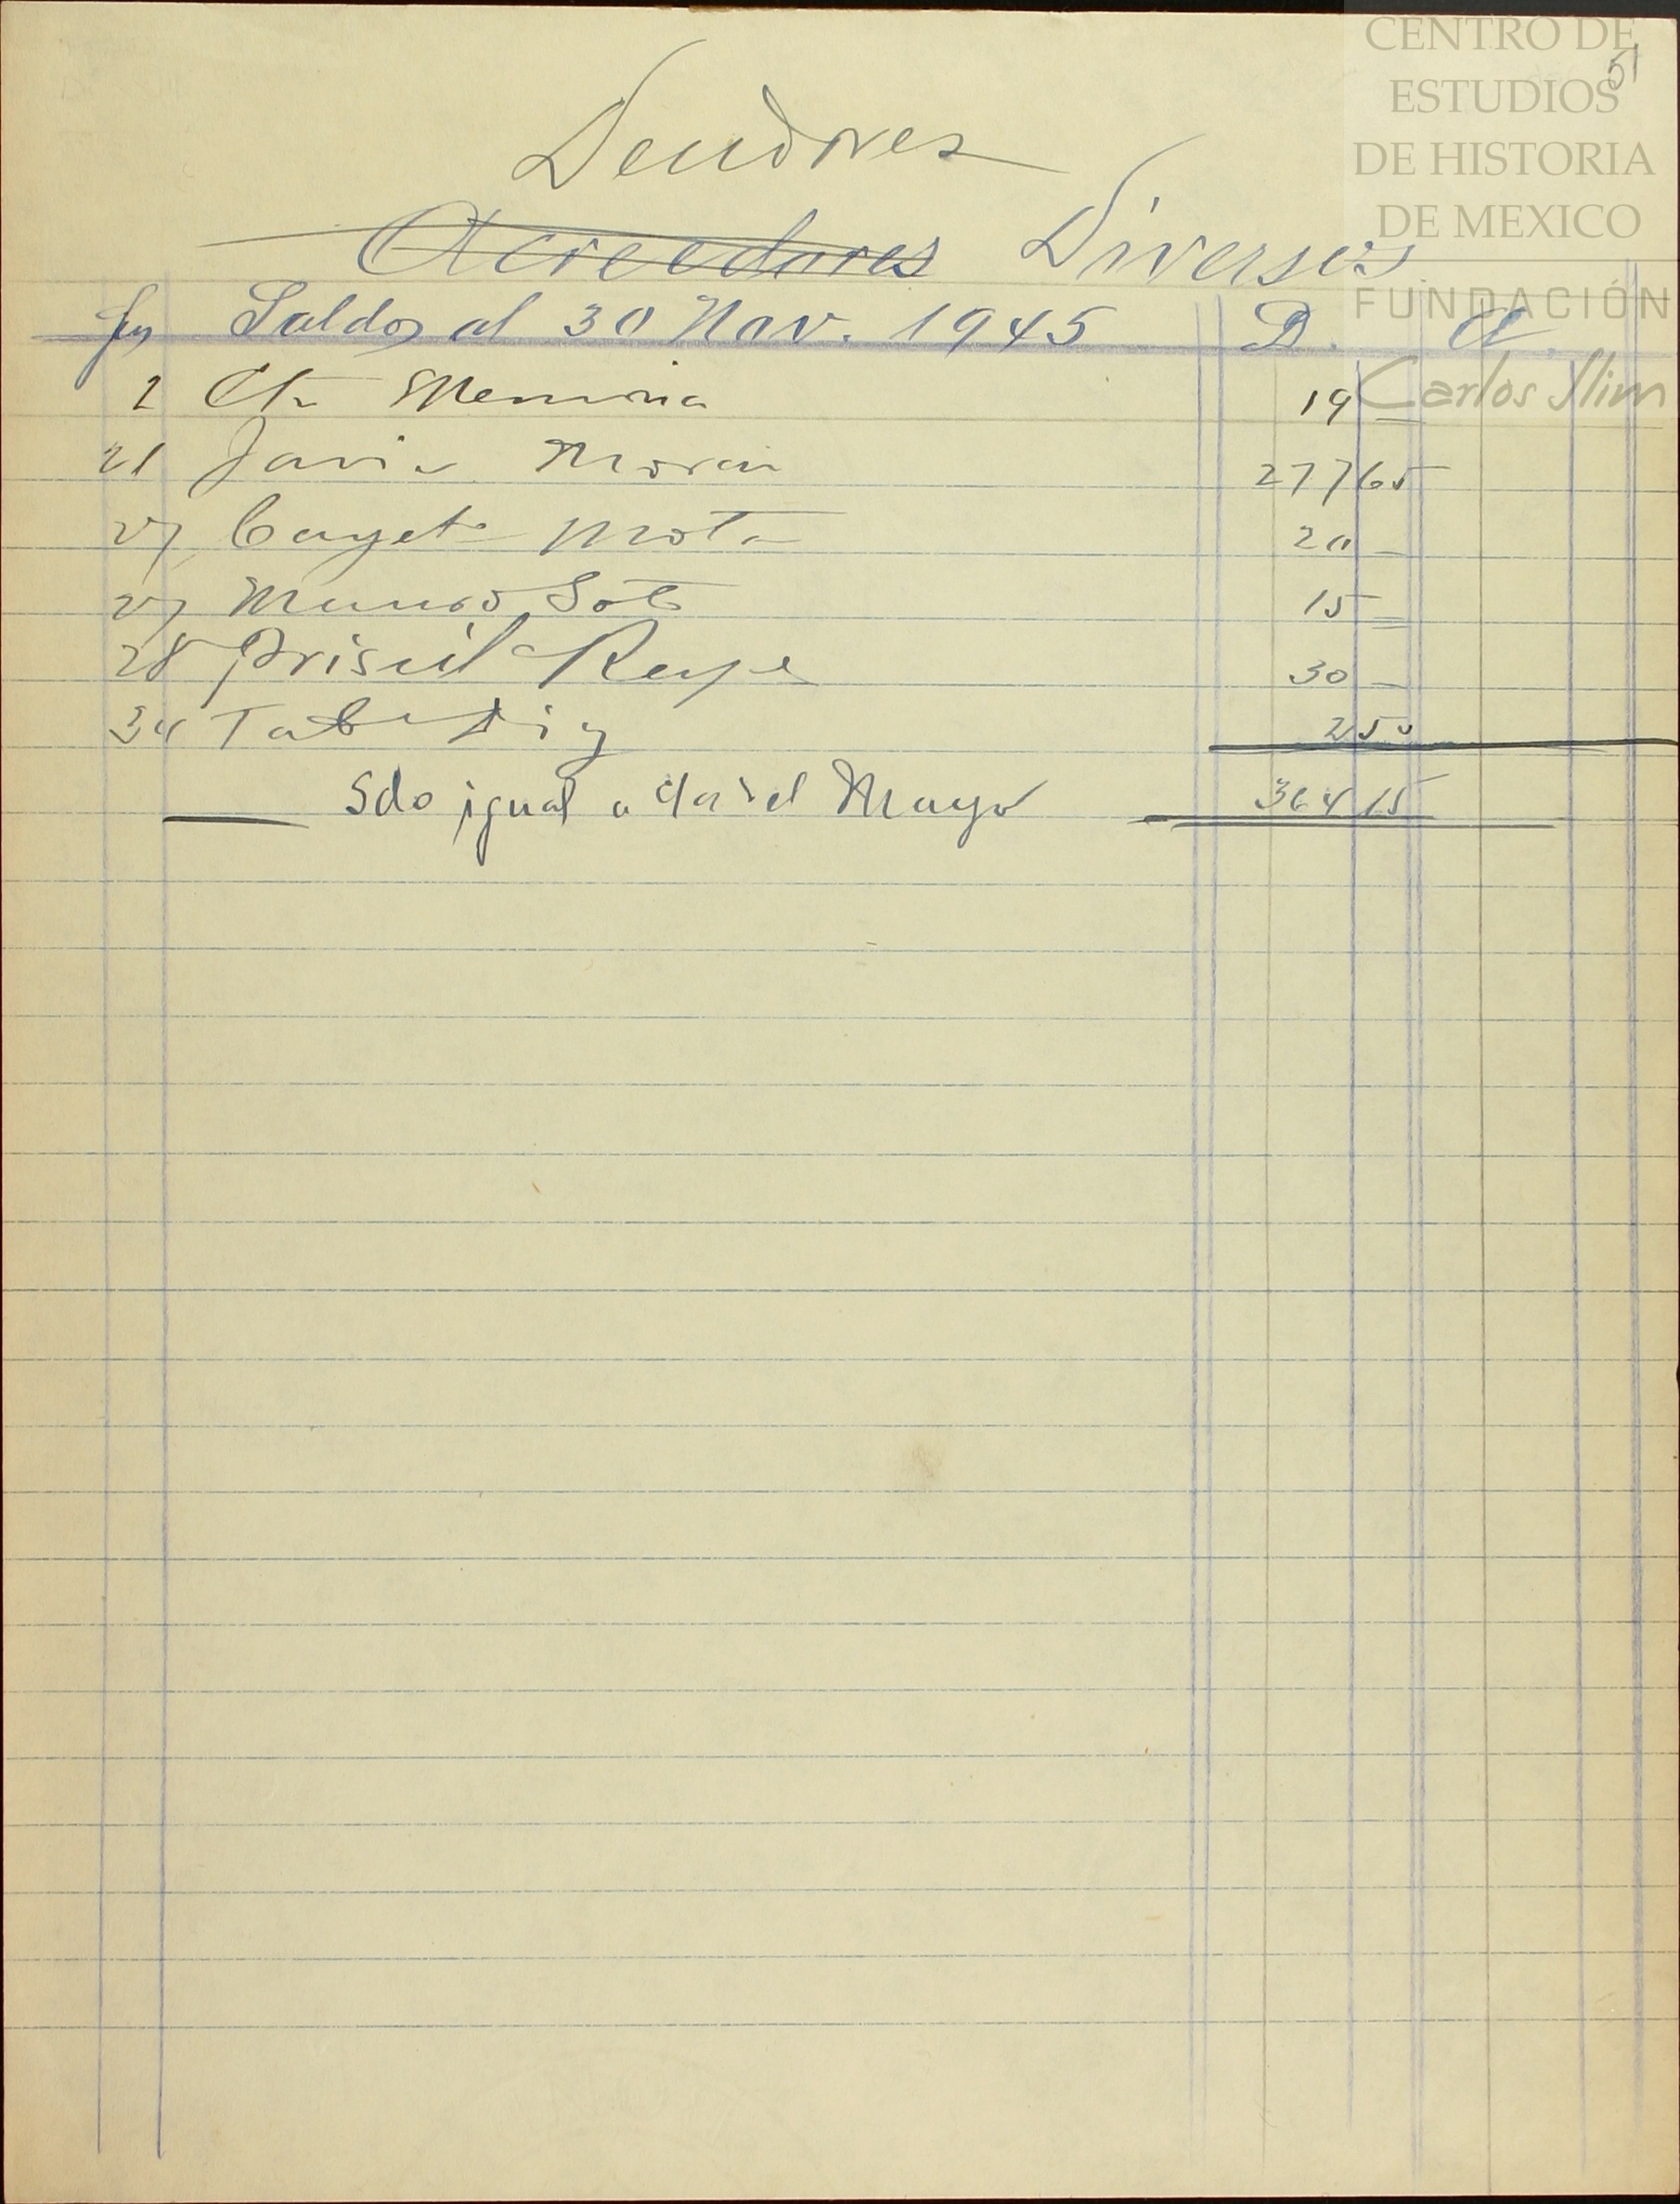 CENTRO DE
ESTUDIOS
DE HISTORIA
DE MEXICO
FUNDACIÓN
Carlos Slim
51
Deudores
Acreedores Diversos
Saldos al 30 Nov. 1945 D. A.
2 Cta Memoria 19 —
21 Javier Moran 277 65
27 Cayet° Mota 20 —
27 Soto 15 —
28 Reyes 30 —
2 50
Sdo igual a del Mayor 364 15